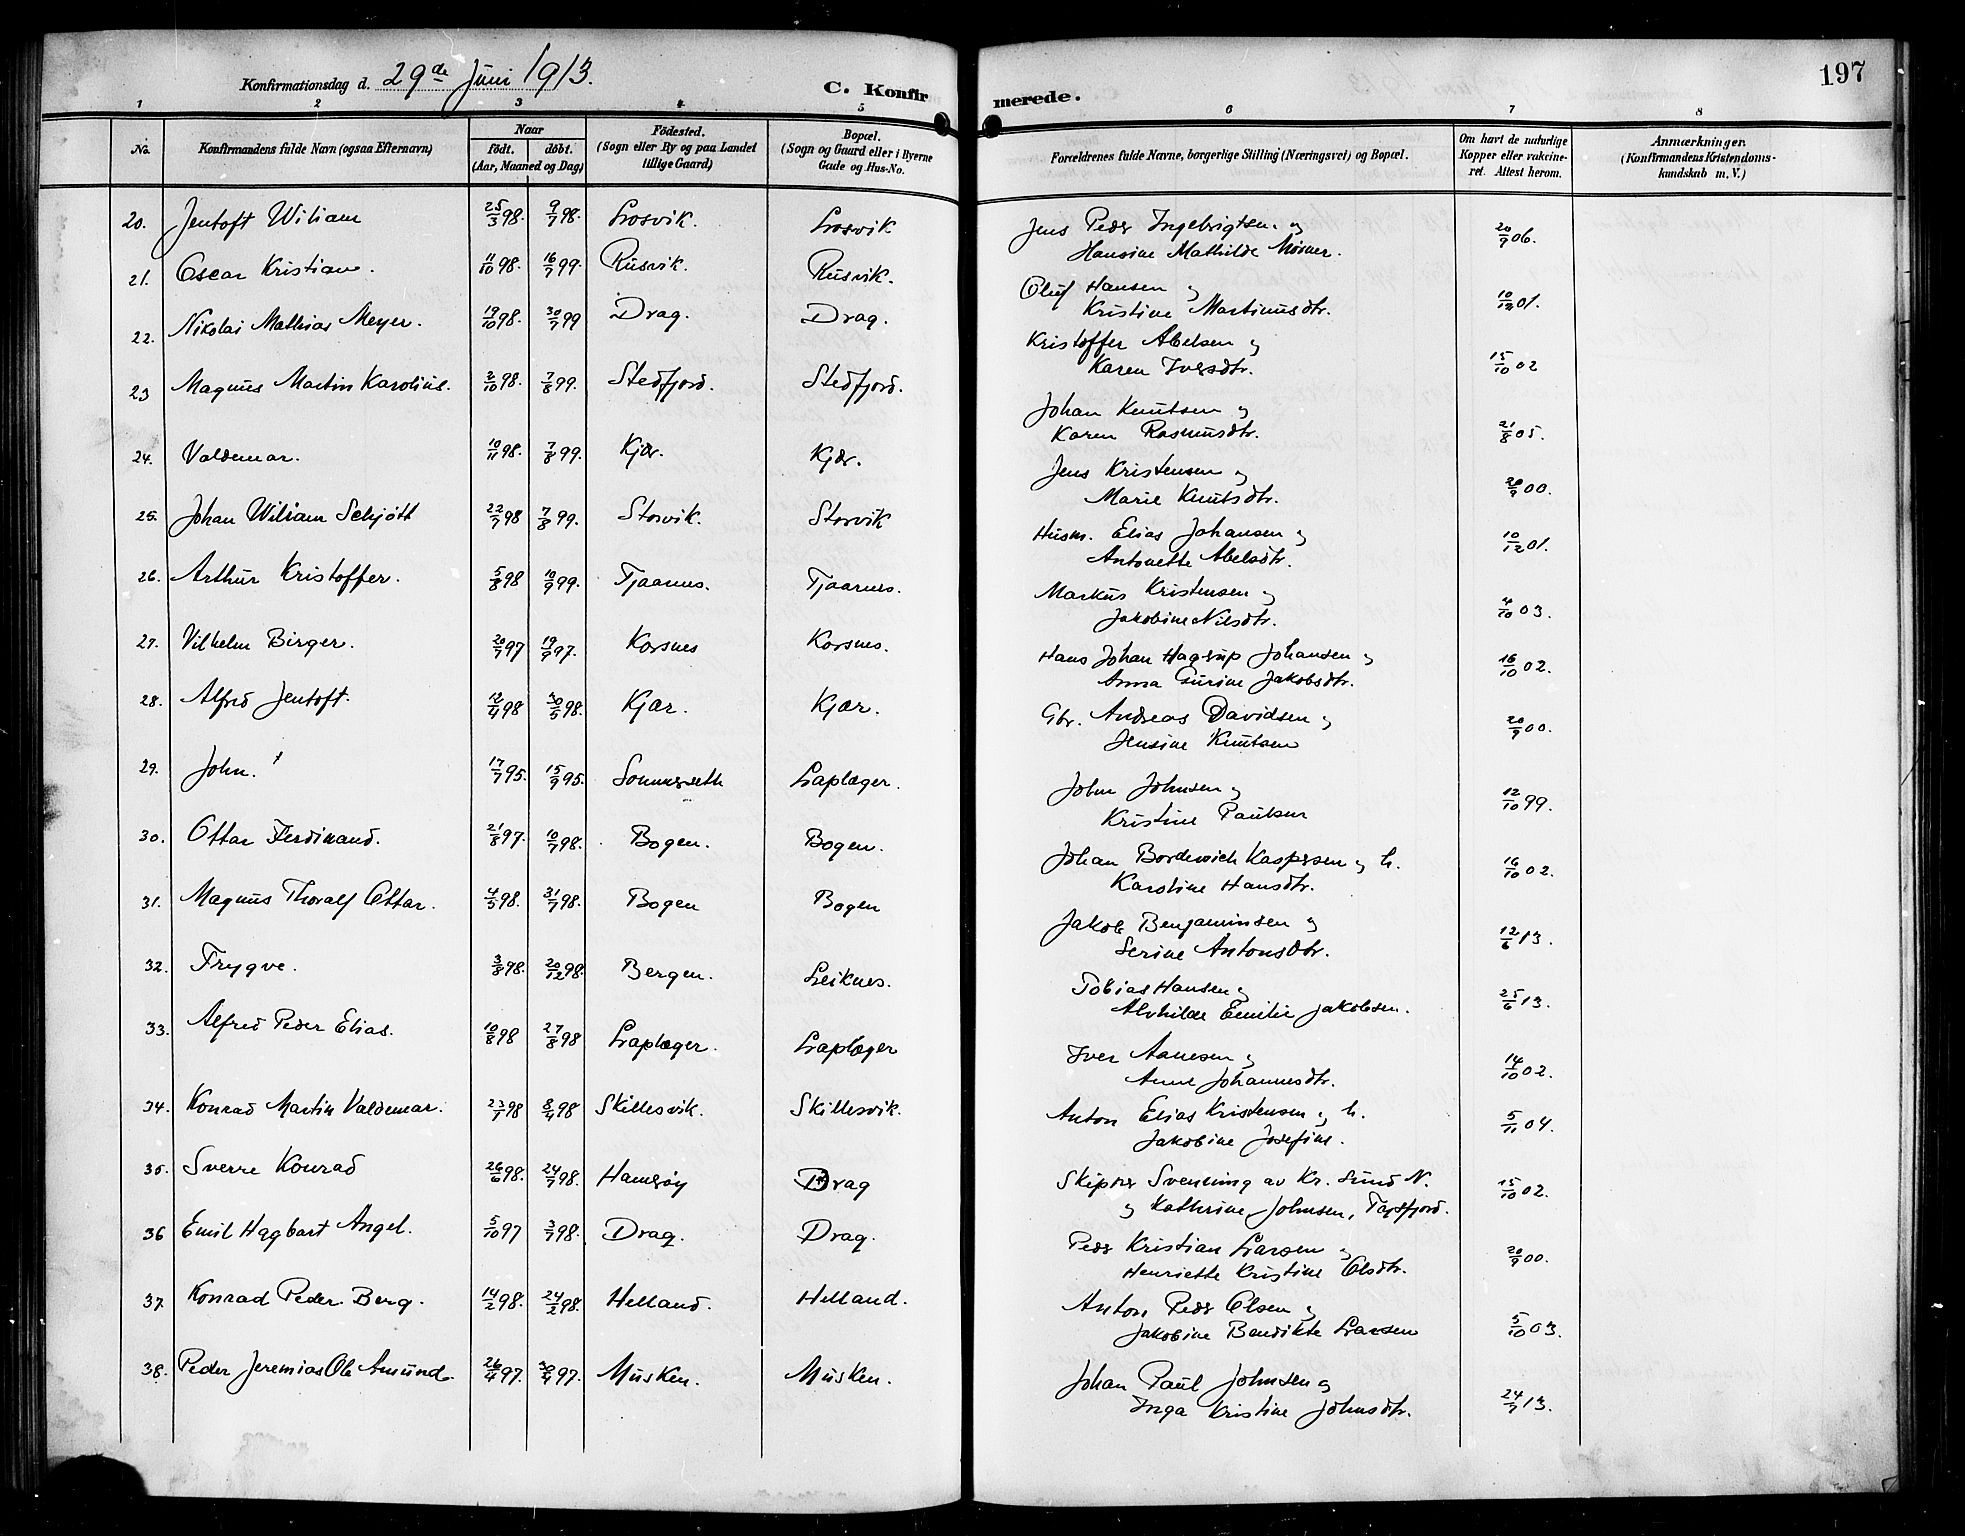 Konfirmationsdag d. 29de Juni 1913.
C. Konfirmerede.
197
1 2 3 4 5 6 7 8
No.
Konfirmandens fulde Navn (ogsaa Efternavn)
Naar
födt. döbt.
(Aar, Maaned og Dag)
Födested.
(Sogn eller By og paa Landet
tillige Gaard)
Bopæl.
(Sogn og Gaard eller i Byerne
Gade og Hus-No.
Forældrenes fulde Navne, borgerlige Stilling (Næringsvei) og Bopæl.
Om havt de naturlige
Kopper eller vakcine-
ret. Attest herom.
Anmærkninger.
(Konfirmandens Kristendoms-
kundskab m. V.)
20. Jentoft Wiliam 25/3 98. 9/7 98. Losvik. Losvik Jens Peder Ingebrigtsen og 20/9 06.
Hansine Mathilde
21. Oscar Kristian. 11/10 98. 16/7 99. Rusvik. Rusvik. Oluf Hansen og 10/12 01.
Kristine Martinusdtr.
22. Nikolai Mathias Meyer. 19/10 98. 30/7 99 Drag. Drag. Kristoffer Abelsen og 15/10 02
Karen Iversdtr.
23 Magnus Martin Karolius. 2/10 98. 7/8 99. Stedfjord. Stedfjord. Johan Knutsen og 21/8 05.
Karen Rasmusdtr.
24. Valdemar. 10/11 98. 7/8 99. Kjær. Kjær. Jens Kristensen og 20/9 00.
Marie Knutsdtr.
25. Johan Wiliam Schjött 22/7 98 7/8 99. Storvik. Storvik Husm. Elias Johansen og 10/12 01.
Antonette Abelsdtr.
26. Arthur Kristoffer. 5/8 98 10/9 99. Tjaarnes. Tjaarnes. Markus Kristensen og 4/10 03.
Jakobine Nilsdtr.
27. Vilhelm Birger. 20/7 97 19/9 97. Korsnes Korsnes. Hans Johan Hagerup Johansen og 16/10 02.
Anna Gurine Jakobsdtr.
28. Alfred Jentoft. 12/4 98 30/5 98. Kjær. Kjær. Gbr. Andreas Davidsen og 20/9 00.
Jensine Knutsen
29. John. 17/7 95. 15/9 95. Sommerseth Laplæger. John Johnsen og 12/10 99.
Kristine Paulsen
30. Ottar Ferdinand. 21/8 97. 10/7 98. Bogen. Bogen. Johan Bordewich Kaspersen og h. 16/10 02.
Karoline Hansdtr.
31. Magnus Thoralf Ottar. 4/5 98. 31/7 98. Bogen Bogen Jakob Benjaminsen og 12/6 13.
Serine Antonsdtr.
32. Trygve. 3/8 98. 20/12 98. Bergen. Leiknes. Tobias Hansen og 25/6 13.
Alvhilde Emilie Jakobsen.
33. Alfred Peder Elias. 10/8 98 27/8 98 Laplæger. Laplæger Iver Aanesen og 14/10 02.
Anne Johannesdtr.
34. Konrad Martin Valdemar. 23/1 98 8/4 98 Skillesvik. Skillesvik. Anton Elias Kristensen og h. 5/11 04.
Jakobine Josefine.
35. Sverre Konrad 26/6 98. 24/7 98. Hamerøy Drag Skipper Svenning av Kr. Sund N. 15/10 02.
og Kathrine Johnsen, Tysfjord.
36 Emil Hagbart Angel. 5/10 97 3/7 98. Drag. Drag. Peder Kristian Larsen og 20/9 00.
Henriette Kristine Olsdtr.
37. Konrad Peder Berg. 14/2 98. 24/2 98. Helland. Helland. Anton Peder Olsen og 5/10 03.
Jakobine Bendikte Larsen
38. Peder Jeremias Ole Amund. 26/4 97. 30/4 97. Musken. Musken. Johan Paul Johnsen og 24/7 13.
Inga Kristine Johnsdtr.